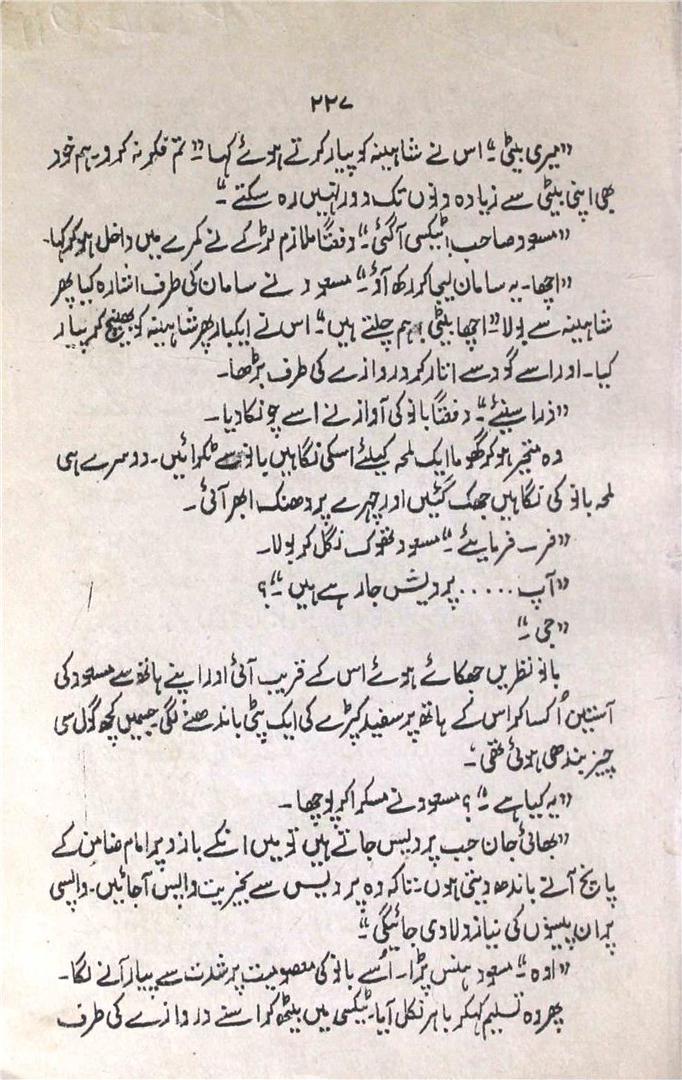 ۲۲۷
”میری بیٹی“۔ اس نے شاہینہ کو پیار کرتے ہوئے کہا ”تم فکر نہ کرو۔ ہم خود
بھی اپنی بیٹی سے زیادہ دنوں تک دور نہیں رہ سکتے“۔
”مسعود صاحب! ٹیکسی آگئی“۔ دفعتاً ملازم لڑکے نے کمرے میں داخل ہو کر کہا۔
”اچھا۔ یہ سامان لیجا کر رکھ آؤ“۔ مسعود نے سامان کی طرف اشارہ کیا پھر
شاہینہ سے بولا ”اچھا بیٹی! ہم چلتے ہیں“۔ اس نے ایکبار پھر شاہینہ کو بھینچ کر پیار
کیا۔ اور اسے گود سے اتار کر دروازے کی طرف بڑھا۔
”ذرا سنیئے“۔ دفعتاً بانو کی آواز نے اسے چونکا دیا۔
وہ متحیر ہو کر گھوما ایک لمحہ کیلئے اسکی نگاہیں بانو سے ٹکرائیں۔ دوسرے ہی
لمحہ بانو کی نگاہیں جھک گئیں اور چہرے پر دھنک ابھر آئی۔
”فر۔ فرمایئے“۔ مسعود تھوک نگل کر بولا۔
”آپ ..... پردیش جار ہے ہیں“۔؟
”جی“۔
بانو نظریں جھکائے ہوئے اس کے قریب آئی اور اپنے ہاتھ سے مسعود کی
آستین اُکسا کر اس کے ہاتھ پر سفید کپڑے کی ایک پٹی باندھنے لگی جسمیں کچھ گول سی
چیز بندھی ہوئی تھی۔
”یہ کیا ہے“۔؟ مسعود نے مسکرا کر پوچھا۔
”بھائی جان جب پردیس جاتے ہیں تو میں انکے بازو پر امام ضامن کے
پانچ آنے باندھ دیتی ہوں۔ تاکہ وہ پردیس سے بخیریت واپس آجائیں۔ واپسی
پر ان پیسوں کی نیاز دلا دی جائیگی“۔
”اوہ“۔ مسعود ہنس پڑا۔ اُسے بانو کی معصومیت پر شدت سے پیار آنے لگا۔
پھر وہ تسلیم کہکر باہر نکل آیا۔ ٹیکسی میں بیٹھ کر اسنے دروازے کی طرف